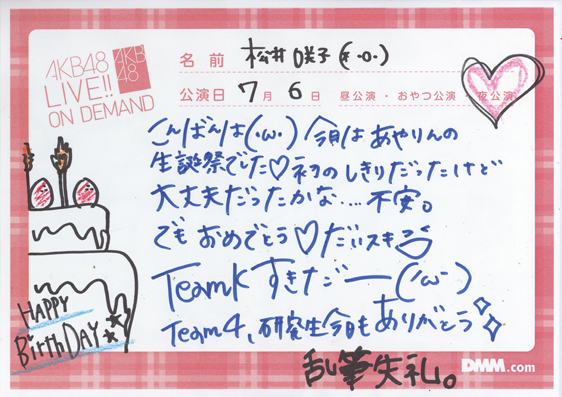 AKB48
LIVE!!
ON DEMAND
AKB
48
名前 松井咲子(*･o･)
公演日 7月6日 昼公演・おやつ公演・夜公演
こんばんは(･ω･) 今日はあやりんの
生誕祭でした♡初のしきりだったけど
大丈夫だったかな....不安。
でもおめでとう♡だいスキ
TeamKすきだー(･ω･)
Team4、研究生今日もありがとう
乱筆失礼。
HAPPY
BirthDAY
DMM.com